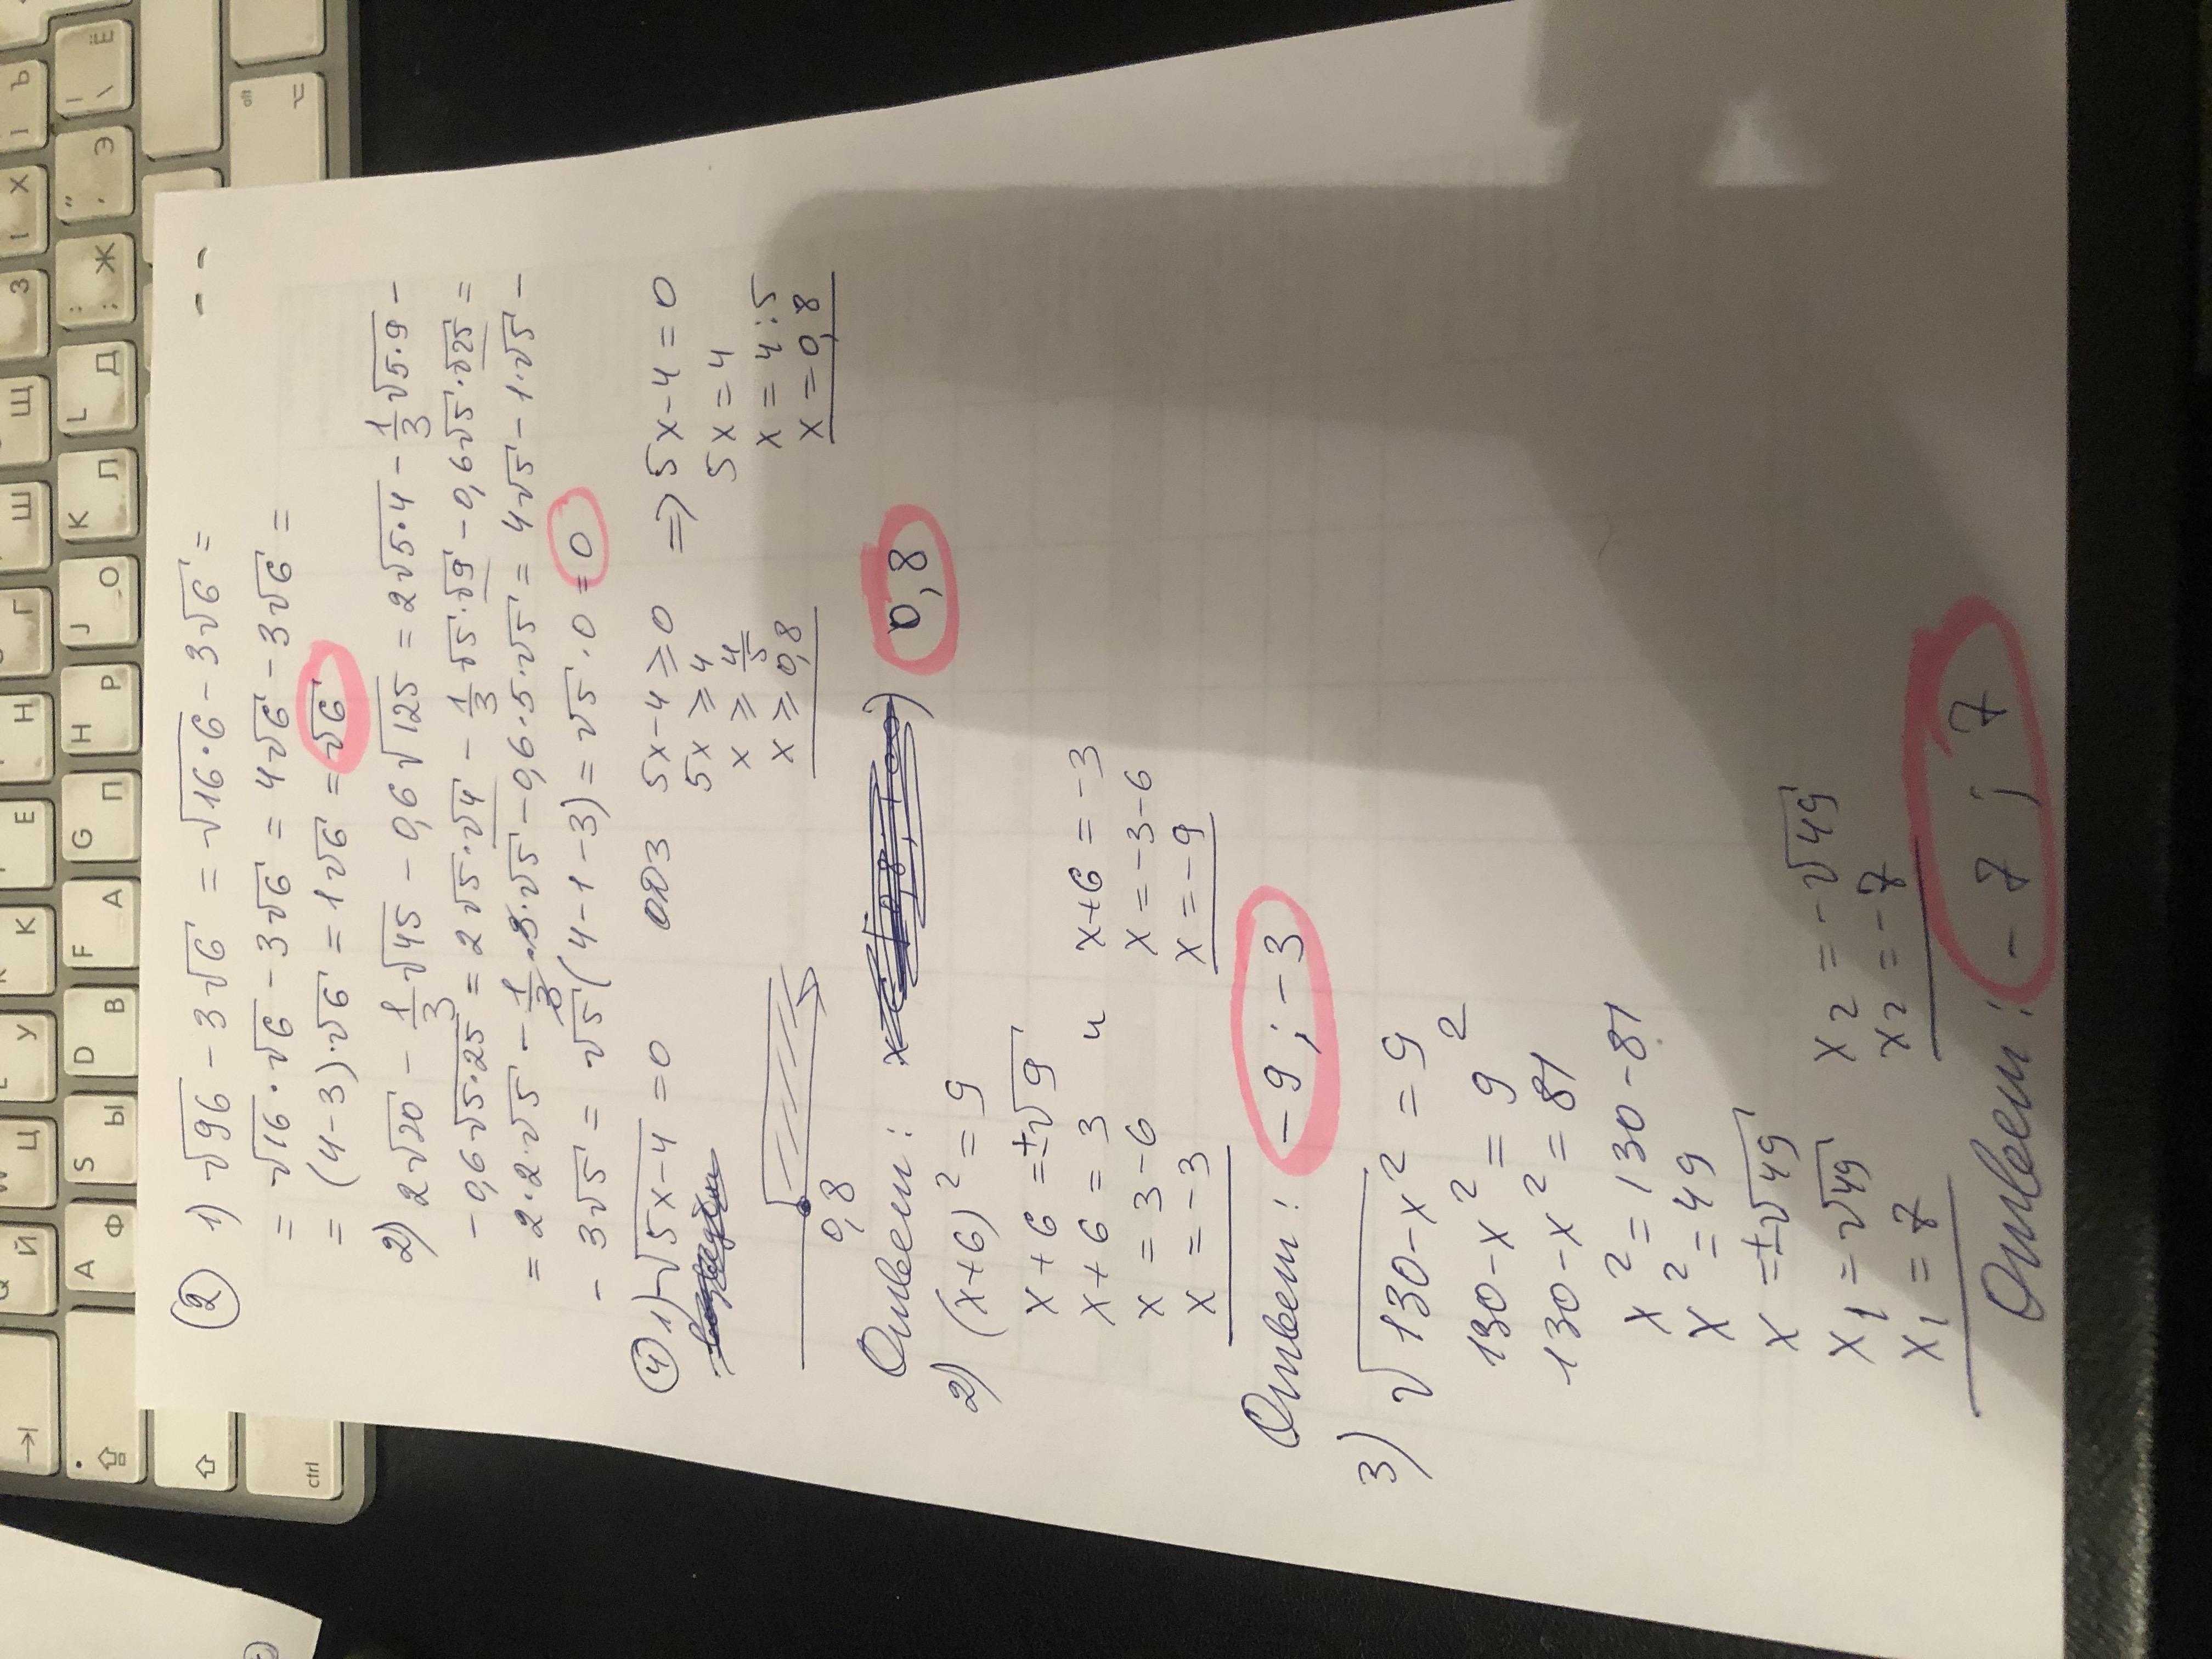 ② 1) √96 - 3√6 = √16·6 - 3√6 =
= √16·√6 - 3√6 = 4√6 - 3√6 =
= (4-3)·√6 = 1√6 = √6
2) 2√20 - 1/3√45 - 0,6√125 = 2√5·4 - 1/3√5·9 -
- 0,6√5·25 = 2√5·√4 - 1/3√5·√9 - 0,6√5·√25 =
= 2·2·√5 - 1/3·3·√5 - 0,6·5·√5 = 4√5 - 1·√5 -
- 3√5 = √5(4-1-3) = √5·0 = 0
④ 1) √5x-4 = 0 ОДЗ 5x-4 ≥ 0 ⇒ 5x-4 = 0
5x ≥ 4 5x = 4
x ≥ 4/5 x = 4:5
x ≥ 0,8 x = 0,8
0,8
Ответ: 0,8
2) (x+6)² = 9
x+6 = ±√9
x+6 = 3 и x+6 = -3
x = 3-6 x = -3-6
x = -3 x = -9
Ответ: -9; -3
3) √130-x² = 9
130-x² = 9²
130-x² = 81
x² = 130-81
x² = 49
x = ±√49
x₁ = √49 x₂ = -√49
x₁ = 7 x₂ = -7
Ответ: -7; 7
Й Ц У К Е Н Г Ш Щ З Х Ъ
A Ф S Ы D В F А G П H Р J О K Л L Д ; : Ж ' " Э \ | Ё
ctrl
alt